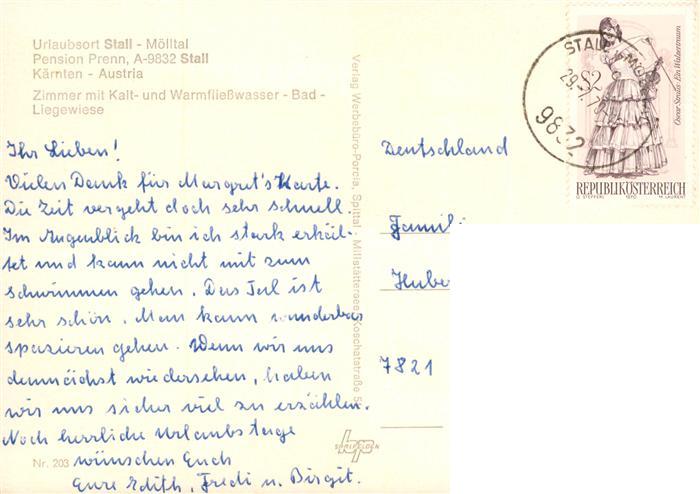 Urlaubsort Stall - Mölltal
Pension Prenn, A-9832 Stall
Kärnten - Austria
Zimmer mit Kalt- und Warmfließwasser - Bad -
Liegewiese
Ihr Lieben!
Vielen Dank für Margret's Karte.
Die Zeit vergeht doch sehr schnell.
Im Augenblick bin ich stark erkäl-
tet und kann nicht mit zum
schwimmen gehen. Das Tal ist
sehr schön. Man kann wunderbar
spazieren gehen. Wenn wir uns
demnächst wiedersehen, haben
wir uns sicher viel zu erzählen.
Noch herrliche Urlaubstage
wünschen Euch
Eure Edith, Fredi u. Birgit.
Nr. 203
Verlag Werbebüro-Porcia, Spittal - Millstättersee, Koschatstraße 5
Deutschland
Famil
Hube
7821
STALL
29.
9832
S2
Oscar Straus: Ein Walzertraum
REPUBLIK ÖSTERREICH
O. STEFFERL 1970 M. LAURENT